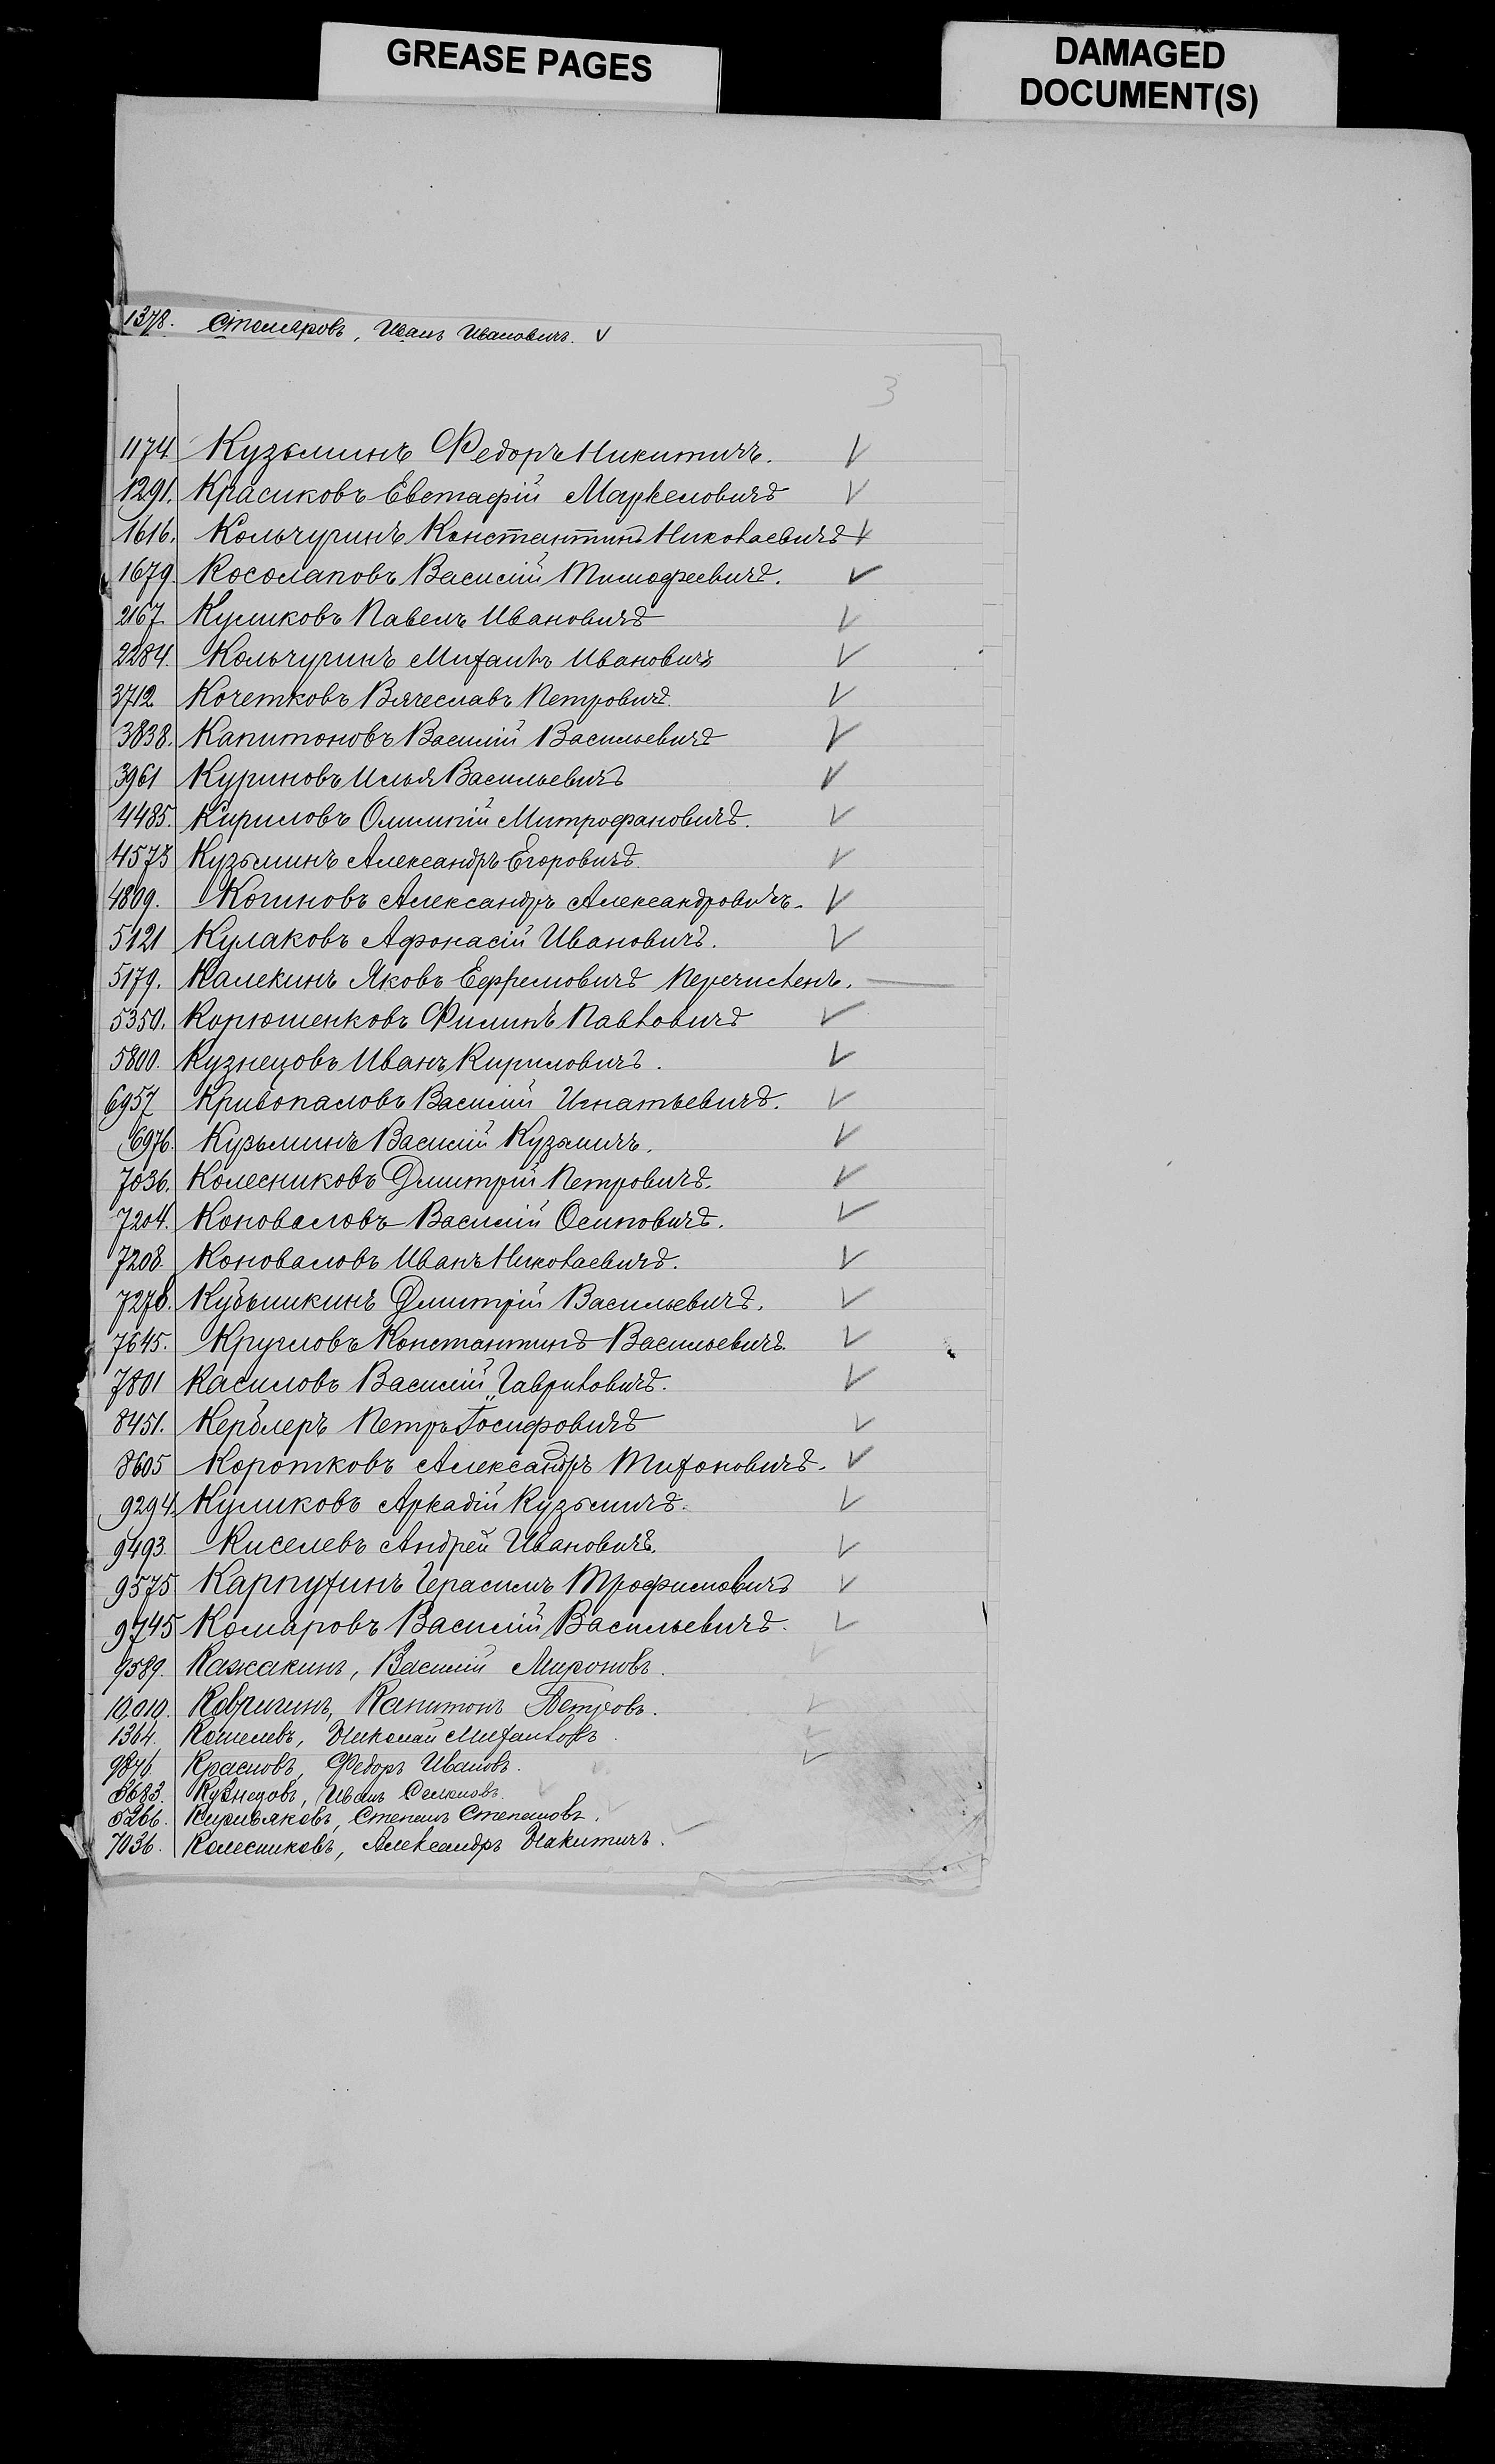 GREASE PAGES
DAMAGED
DOCUMENT(S)
1378. Столяровъ, Иванъ Ивановичъ. V
3
1174 Кузьминъ Федоръ Никитичъ. V
1291. Красиковъ Евстафій Маркеловичъ V
1616. Кольчугинъ Константинъ Николаевичъ V
1679. Косолаповъ Василій Тимофеевичъ. V
2167. Куликовъ Павелъ Ивановичъ V
2284. Кольчугинъ Михаилъ Ивановичъ V
3712 Кочетковъ Вячеславъ Петровичъ. V
3838. Капитоновъ Василій Васильевичъ V
3961 Куриновъ Илья Васильевичъ V
4485. Кириловъ Олимпій Митрофановичъ. V
4573 Кузьминъ Александръ Егоровичъ. V
4809. Когиновъ Александръ Александровичъ. V
5121 Кулаковъ Афонасій Ивановичъ. V
5179. Калекинъ Яковъ Ефремовичъ перечисленъ. —
5350. Корюшенковъ Филипъ Павловичъ V
5800. Кузнецовъ Иванъ Кириловичъ. V
6957 Кривопаловъ Василій Игнатьевичъ. V
6976. Кузьминъ Василій Кузмичъ. V
7036. Колесниковъ Дмитрій Петровичъ. V
7204. Коноваловъ Василій Осиповичъ. V
7208. Коноваловъ Иванъ Николаевичъ. V
7278. Кубышкинъ Дмитрій Васильевичъ. V
7645. Кругловъ Константинъ Васильевичъ. V
7801 Касиловъ Василій Гавриловичъ. V
8451. Керблеръ Петръ Іосифовичъ V
8605 Коротковъ Александръ Тихоновичъ. V
9294. Куликовъ Аркадій Кузьмичъ. V
9493. Киселевъ Андрей Ивановичъ. V
9575 Карпухинъ Герасимъ Трофимовичъ V
9745 Комаровъ Василій Васильевичъ. V
9589. Кажакинъ, Василій Мироновъ. V
10,010. Ковригинъ, Капитонъ Петровъ. V
1364. Кошелевъ, Николай Михайловъ. V
9846. Красновъ, Федоръ Ивановъ. V
3683. Кузнецовъ, Иванъ V
5266. Кирьяковъ, Степанъ Степановъ. V
7036. Колесниковъ, Александръ Никитичъ. V